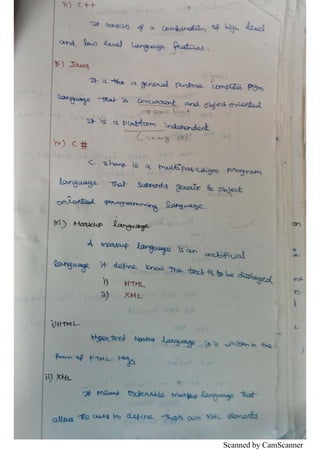 ii) C++
It consists of a combination of high level
and low level language features.
iii) Java
It is the a general purpose computer pgm
language that is concurrent and object oriented
It is a platform independent
iv) C #
C sharp is a multiparadigm program
language that supports generic & object
oriented programming language.
Markup language
A markup language is an artificial
language it define know the text is to be displayed
i) HTML
ii) XML
i) HTML
Hyper text markup language it is written in the
form of HTML tags
ii) XML
It means Extensible markup language that
allows the users to define their own XML elements
Scanned by CamScanner